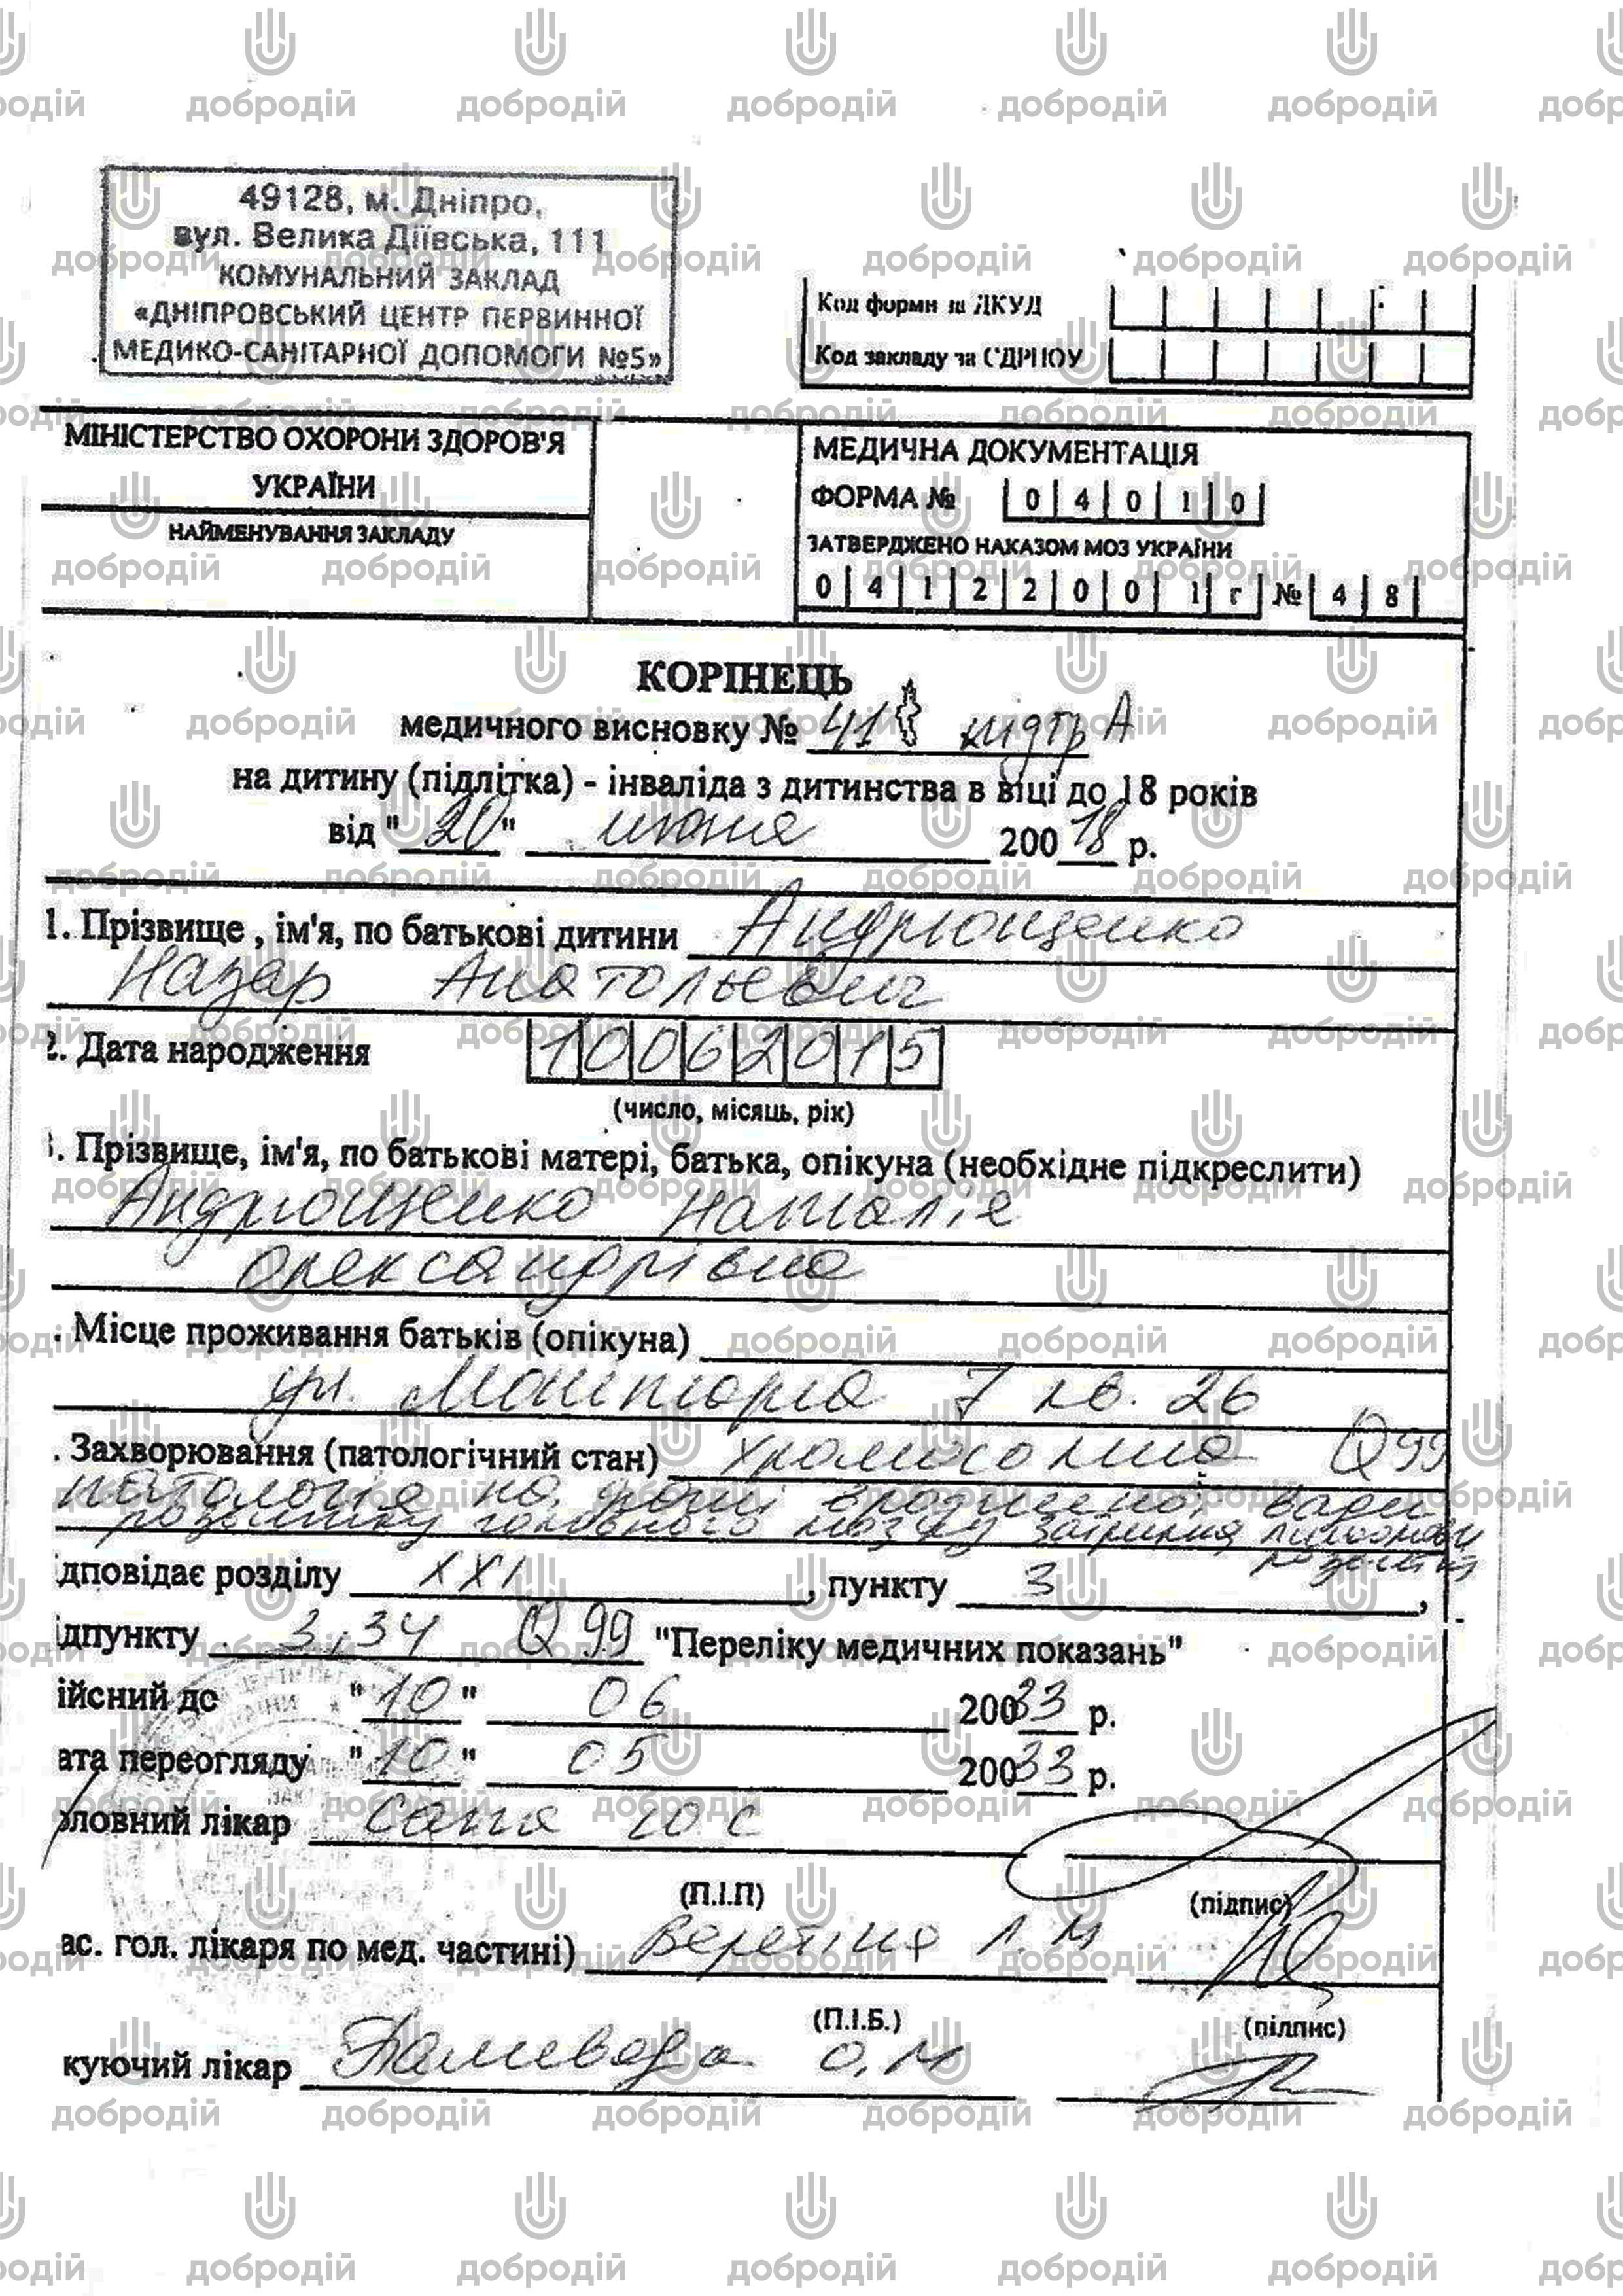 49128, м. Дніпро,
вул. Велика Діївська, 111
КОМУНАЛЬНИЙ ЗАКЛАД
«ДНІПРОВСЬКИЙ ЦЕНТР ПЕРВИННОЇ
МЕДИКО-САНІТАРНОЇ ДОПОМОГИ №5»
Код форми за ДКУД
Код закладу за ЄДРПОУ
МІНІСТЕРСТВО ОХОРОНИ ЗДОРОВ'Я
УКРАЇНИ
НАЙМЕНУВАННЯ ЗАКЛАДУ
МЕДИЧНА ДОКУМЕНТАЦІЯ
ФОРМА № 0 4 0 1 0
ЗАТВЕРДЖЕНО НАКАЗОМ МОЗ УКРАЇНИ
0 4 1 2 2 0 0 1 г № 4 8
КОРІНЕЦЬ
медичного висновку № 41 підгр А
на дитину (підлітка) - інваліда з дитинства в віці до 18 років
від "20" июня 200 18 р.
1. Прізвище , ім'я, по батькові дитини Андрющенко
Назар Анатольевич
2. Дата народження 1 0 0 6 2 0 1 5
(число, місяць, рік)
. Прізвище, ім'я, по батькові матері, батька, опікуна (необхідне підкреслити)
Андрющенко Наталіе
Олександрівна
. Місце проживання батьків (опікуна)
ул. 7 кв. 26
. Захворювання (патологічний стан) Хромосомна Q99
патологія на фоні вродженої вади
розвитку головного мозку затримка
розвитку
ідповідає розділу XXI , пункту 3 ,
ідпункту 3,34 Q 99 "Переліку медичних показань"
ійсний до "10" 06 200 33 р.
ата переогляду "10" 05 200 33 р.
оловний лікар Сапа Ю С
(П.І.П) (підпис)
ас. гол. лікаря по мед. частині) Веретіна Л. М
(П.І.Б.) (підпис)
куючий лікар О. М
добродій